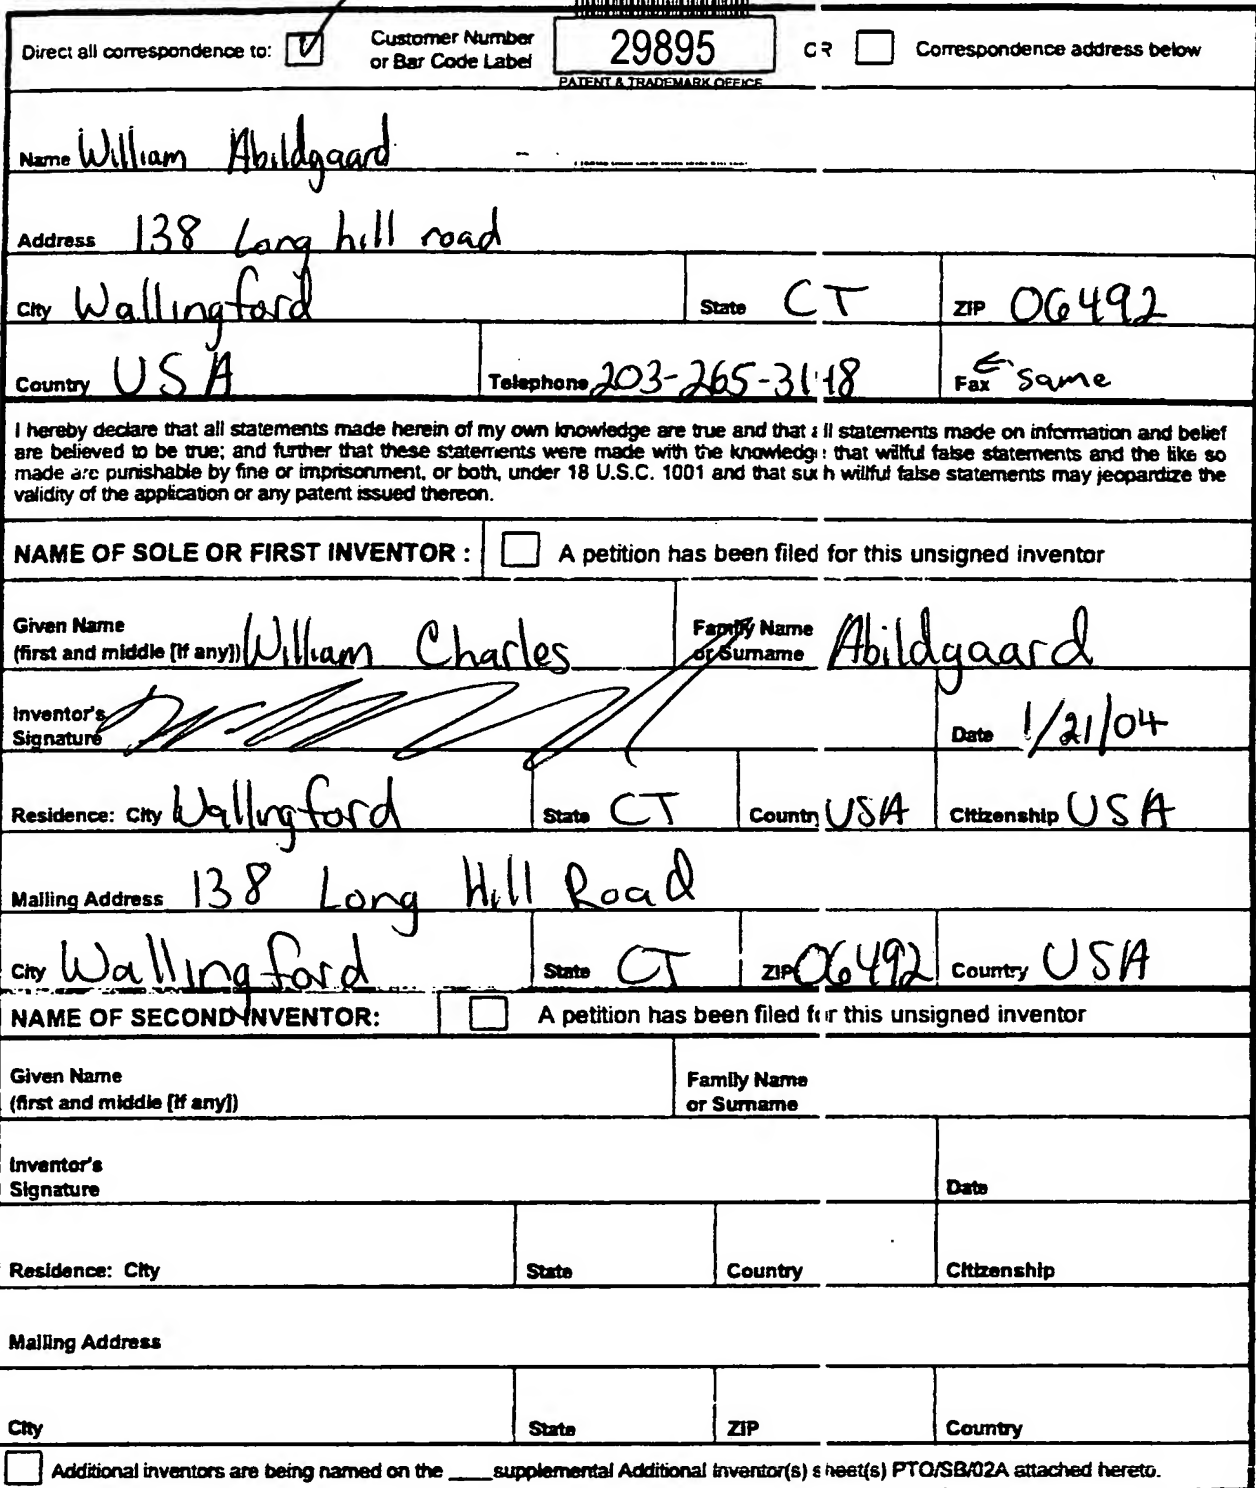 Direct all correspondence to: Customer Number or Bar Code Label 29895 OR Correspondence address below
PATENT & TRADEMARK OFFICE
Name William Abildgaard
Address 138 Long hill road
City Wallingford State CT ZIP 06492
Country USA Telephone 203-265-3118 Fax ← same
I hereby declare that all statements made herein of my own knowledge are true and that all statements made on information and belief
are believed to be true; and further that these statements were made with the knowledge that willful false statements and the like so
made are punishable by fine or imprisonment, or both, under 18 U.S.C. 1001 and that such willful false statements may jeopardize the
validity of the application or any patent issued thereon.
NAME OF SOLE OR FIRST INVENTOR : A petition has been filed for this unsigned inventor
Given Name
(first and middle [if any]) William Charles
Family Name
or Surname Abildgaard
Inventor's
Signature
Date 1/21/04
Residence: City Wallingford State CT Country USA Citizenship USA
Mailing Address 138 Long Hill Road
City Wallingford State CT ZIP 06492 Country USA
NAME OF SECOND INVENTOR: A petition has been filed for this unsigned inventor
Given Name
(first and middle [if any])
Family Name
or Surname
Inventor's
Signature
Date
Residence: City State Country Citizenship
Mailing Address
City State ZIP Country
Additional inventors are being named on the ____ supplemental Additional Inventor(s) sheet(s) PTO/SB/02A attached hereto.